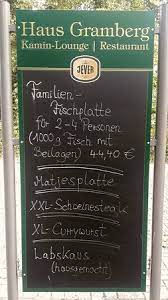 Haus Gramberg
Kamin-Lounge | Restaurant
JEVER
Familien-
Fischplatte
für 2-4 Personen
(1000g Fisch mit
Beilagen) 44,40 €
Matjesplatte
XXL-Schweinesteak
XL-Currywurst
Labskaus
(hausgemacht)